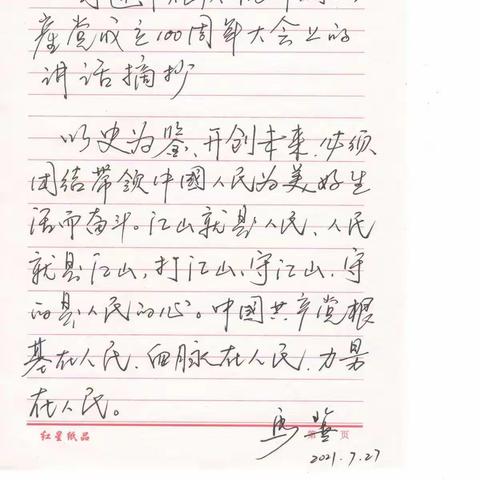 産党成立100周年大会上的
讲话摘抄
以史为鉴、开创未来,必须
团结带领中國人民为美好生
活而奋斗。江山就是人民、人民
就是江山,打江山、守江山,守
的是人民的心。中国共产党根
基在人民、血脉在人民、力量
在人民。
红星纸品 第 页
2021.7.27